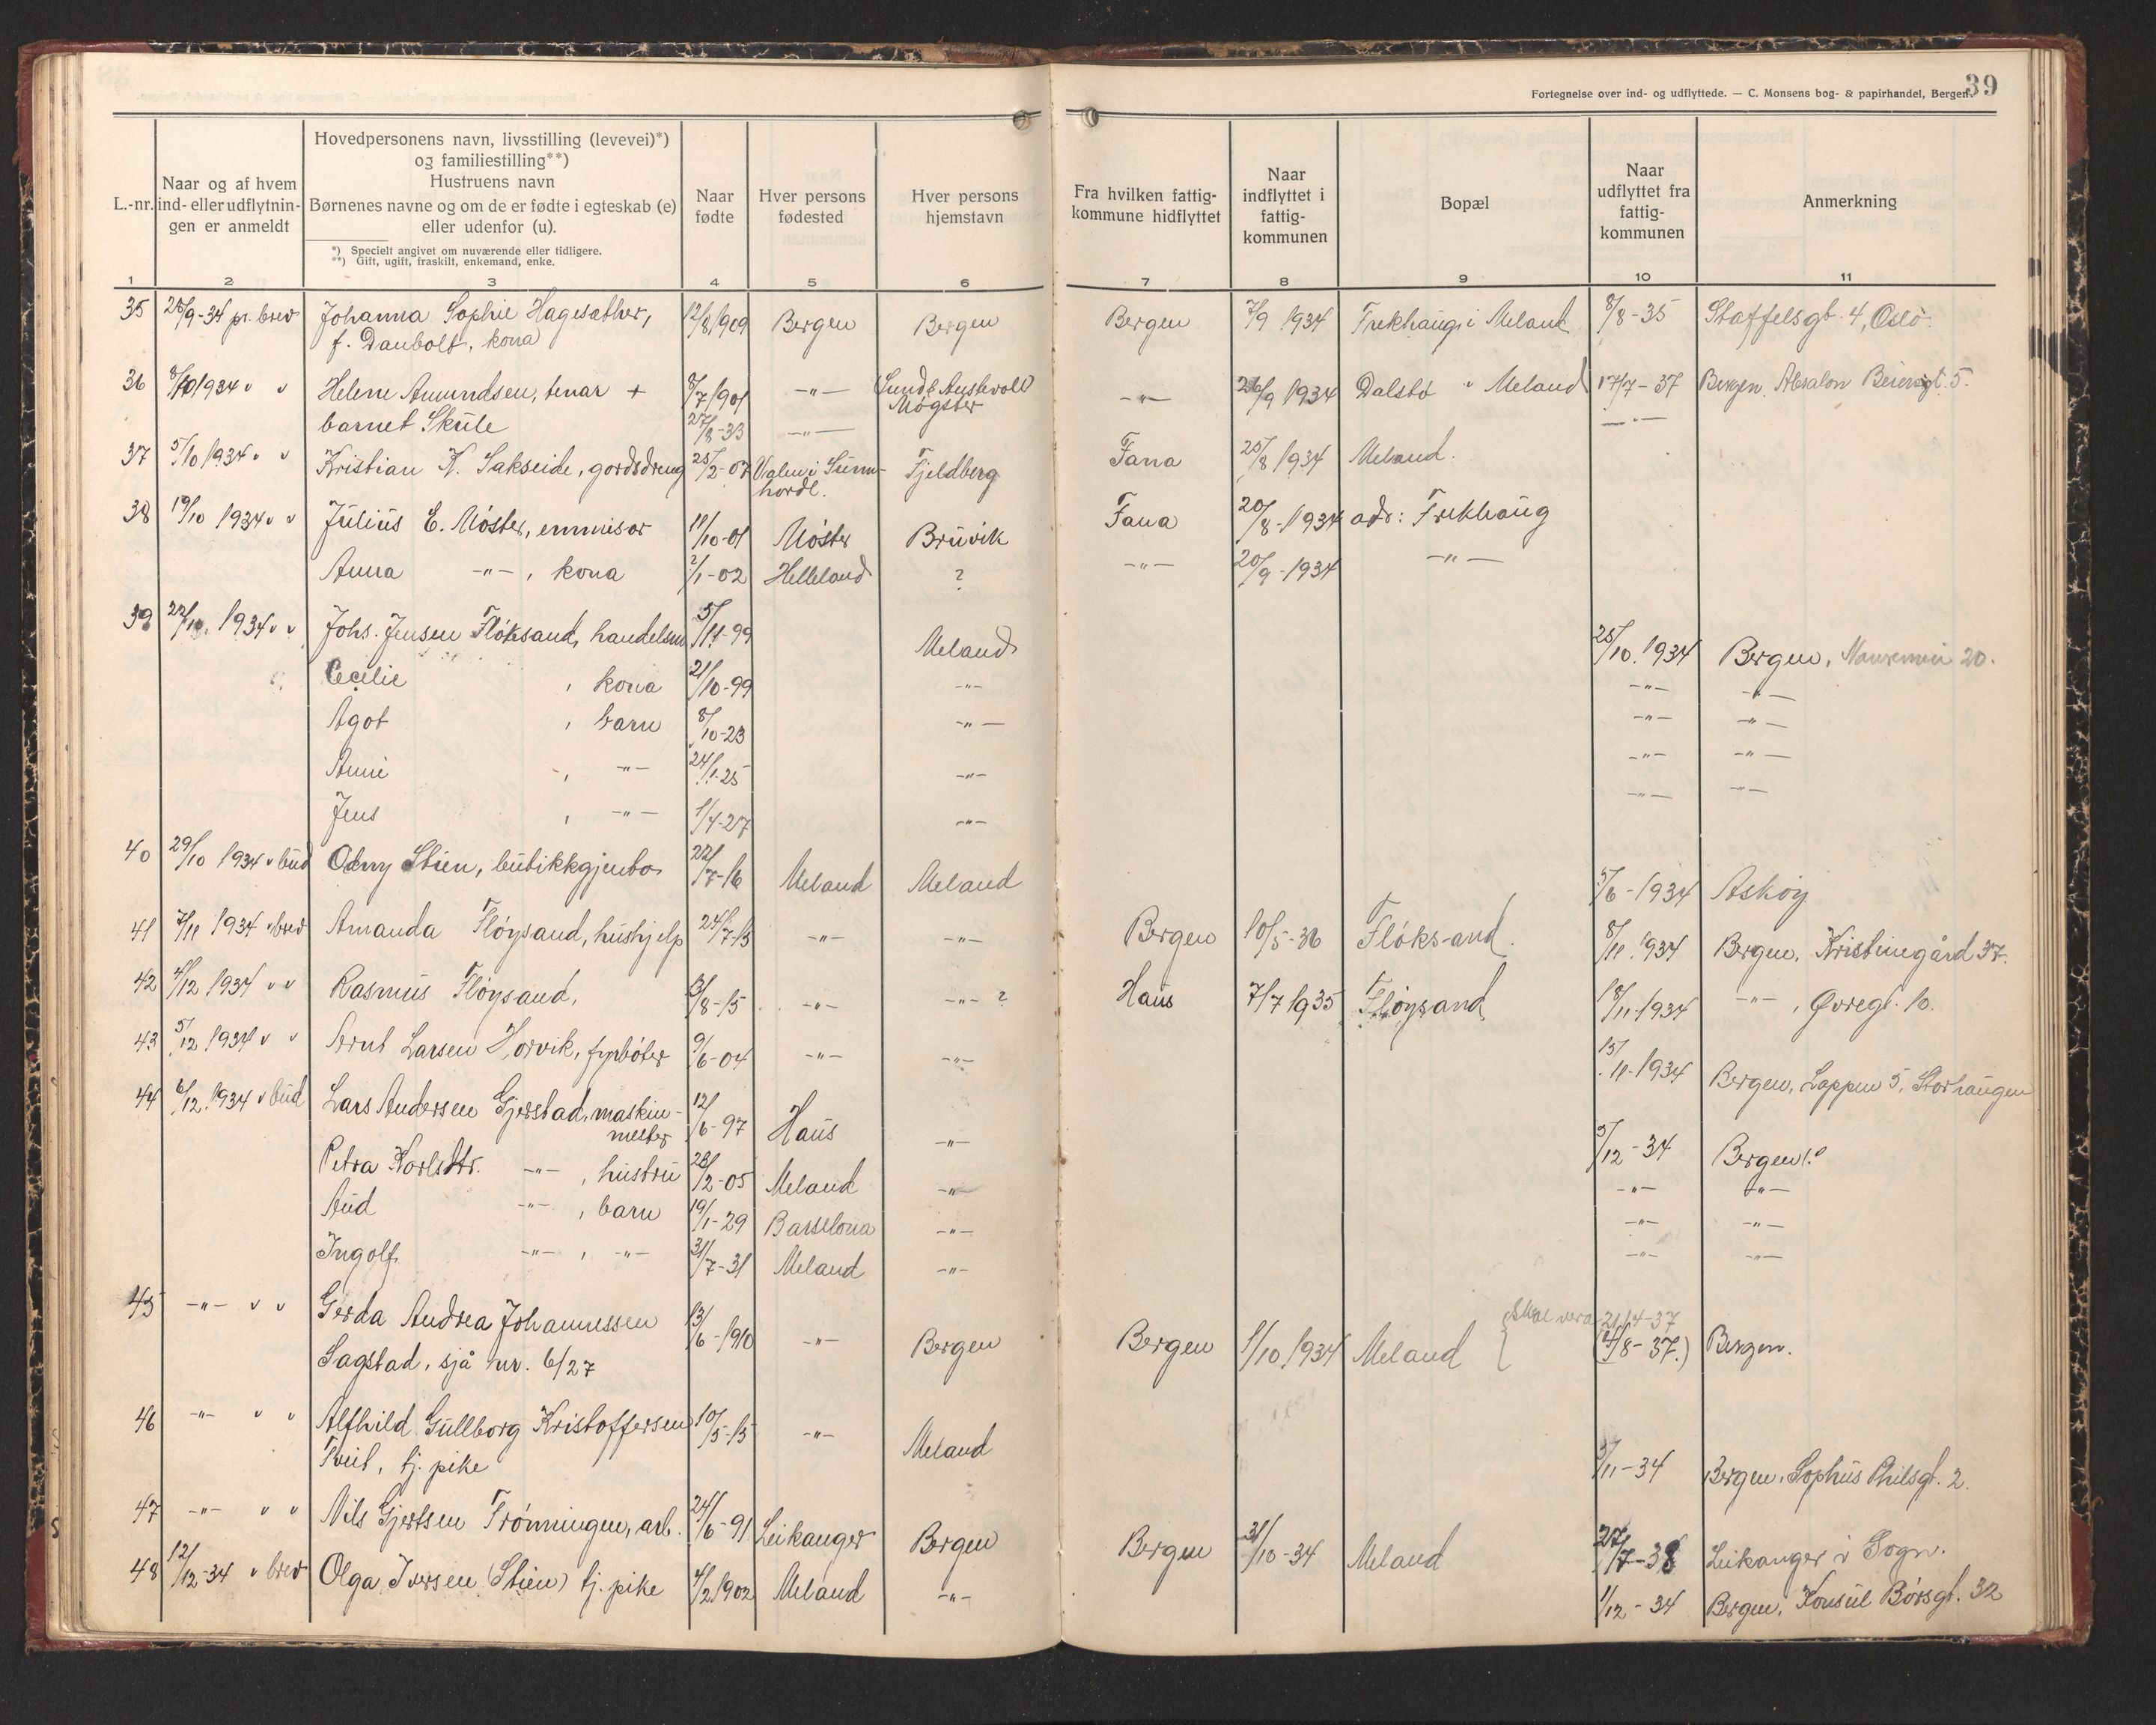 39
Fortegnelse over ind- og udflyttede. — C. Monsens bog- & papirhandel, Bergen.
L.-nr.
Naar og af hvem ind- eller udflytningen er anmeldt
Hovedpersonens navn, livsstilling (levevei)*)
og familiestilling**)
Hustruens navn
Børnenes navne og om de er fødte i egteskab (e)
eller udenfor (u).
*) Specielt angivet om nuværende eller tidligere.
**) Gift, ugift, fraskilt, enkemand, enke.
Naar fødte
Hver persons fødested
Hver persons hjemstavn
Fra hvilken fattigkommune hidflyttet
Naar indflyttet i fattigkommunen
Bopæl
Naar udflyttet fra fattigkommunen
Anmerkning
1 2 3 4 5 6 7 8 9 10 11
35 28/9-34 pr. brev Johanna Sophie Hagesæther, 12/8 1909 Bergen Bergen Bergen 7/9 1934 Frekhaug i Meland 8/8-35 Staffelsgt. 4, Oslo.
f. Danbolt, kona
36 8/10 1934 " " Helene Amundsen, tenar + 8/7 1901 -"- (Sund & Austevoll) Møgster -"- 26/9 1934 Dalstø " Meland 17/7-37 Bergen. Absalon Beiersgt. 5.
barnet Skule 27/8-33 -"- -"-
37 5/10 1934 " " Kristian K. Sakseide, gordsdreng 25/2-07 Valen i Sunnhordl. Fjeldberg Fana 25/8 1934 Meland.
38 19/10 1934 " " Julius E. Møster, emmisær 11/10-01 Møster Bruvik Fana 20/8-1934 adr: Frekhaug
Anna -"-, kona 2/1-02 Helleland ? -"- 20/9-1934 -"-
39 22/10. 1934 " " Johs. Jensen Fløksand, handelsm 5/11-99 Meland 25/10. 1934 Bergen, 20.
Cecilie , kona 21/10-99 -"- -"- -"-
Agot , barn 8/10-23 -"- -"- -"-
Anni , -"- 24/1-25 -"- -"- -"-
Jens , -"- 1/4-27 -"- -"- -"-
40 29/10 1934 " bud Odny Stien, butikkgjenta 22/7-16 Meland Meland 5/6-1934 Askøy
41 7/11 1934 " brev Amanda Fløysand, hushjelp 24/7-15 -"- -"- Bergen 10/5-36 Fløksand. 8/11. 1934 Bergen, Kristinegård 37.
42 4/12 1934 " " Rasmus Fløysand, 3/8-15 -"- -"- ? Haus 7/7 1935 Fløysand 18/11-1934 -"- , Øvregt. 10.
43 5/12 1934 " " Arnt Larsen Horvik, fyrbøter 9/6-04 -"- -"- 15/11-1934 Bergen, Lappen 5, Storhaugen
44 6/12. 1934 " bud Lars Andersen Gjerstad, maskinmester 12/6-97 Haus -"- 5/12-34 Bergen!?
Petra Karlsdtr. -"- , hustru 28/2-05 Meland -"- -"- -"-
Aud -"- , barn 19/1-29 Barselona -"- -"- -"-
Ingolf -"- , -"- 31/7-31 Meland -"- -"- -"-
45 -"- " " Gerda Andrea Johannessen 13/6-1910 -"- Bergen Bergen 1/10. 1934 Meland { Skal vera 21/4-37
Sagstad, sjå nr. 6/27 (4/8-37.) Bergen.
46 -"- " " Alfhild Gullborg Kristoffersen 10/5-15 -"- Meland 5/11-34 Bergen. Sophus Philsgt. 2.
Tveit, tj. pike
47 -"- " " Nils Gjertsen Frønningen, arb. 24/6-91 Leikanger Bergen Bergen 31/10-34 Meland 27/7-38 Leikanger i Sogn.
48 12/12-34 " brev Olga Iversen (Stien) tj. pike 4/2 1902 Meland -"- 1/12-34 Bergen, Konsul Børsgt. 32